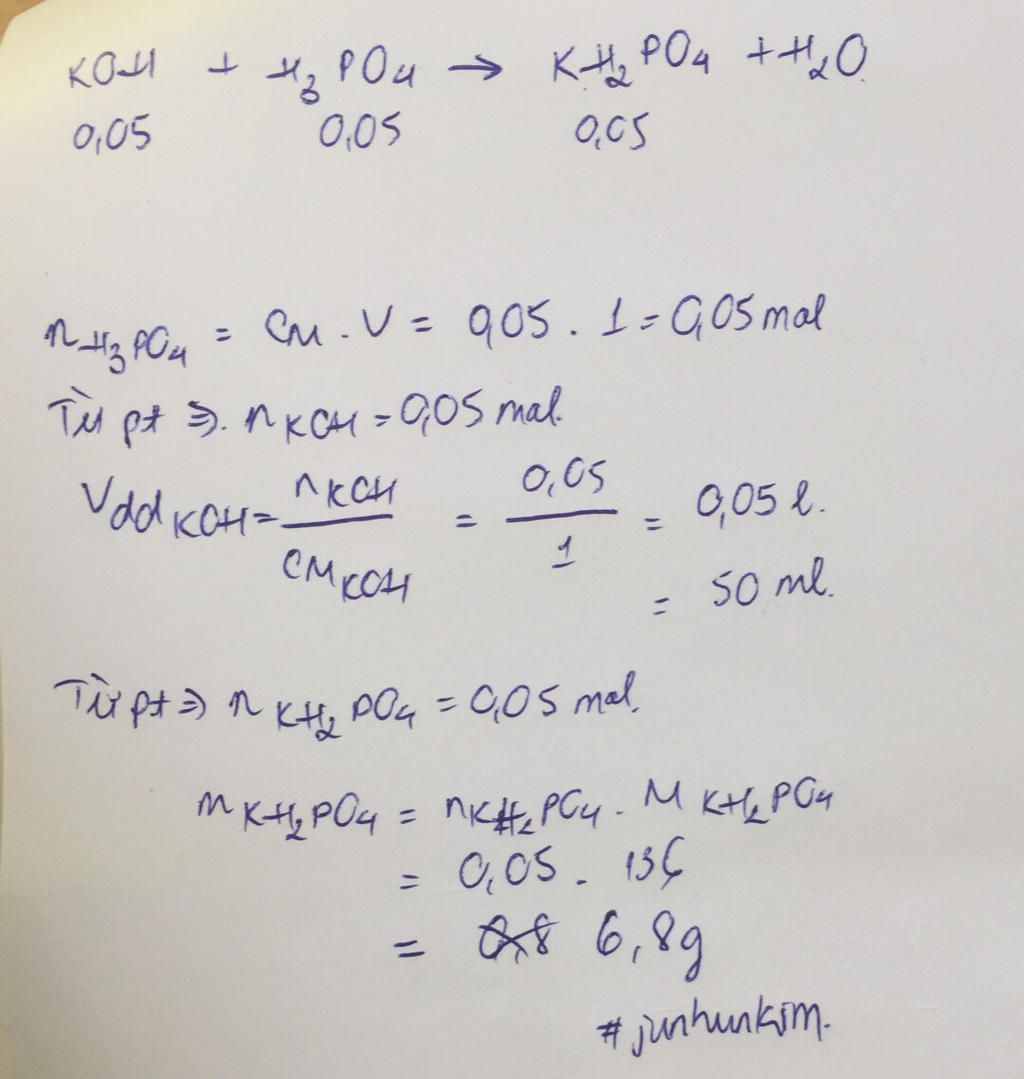 KOH + H₃PO₄ → KH₂PO₄ + H₂O
0,05 0,05 0,05
n H₃PO₄ = CM . V = 0,05 . 1 = 0,05 mol
Từ pt ⇒ n KOH = 0,05 mol.
Vdd KOH = n KOH / CM KOH = 0,05 / 1 = 0,05 l.
= 50 ml.
Từ pt ⇒ n KH₂PO₄ = 0,05 mol.
m KH₂PO₄ = n KH₂PO₄ . M KH₂PO₄
= 0,05 . 136
= 6,8g
#junhunkim.